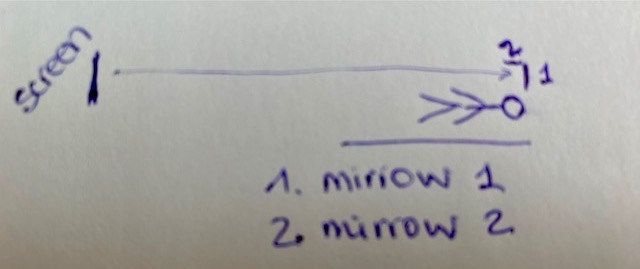 screen
2
1
1. mirrow 1
2. mirrow 2